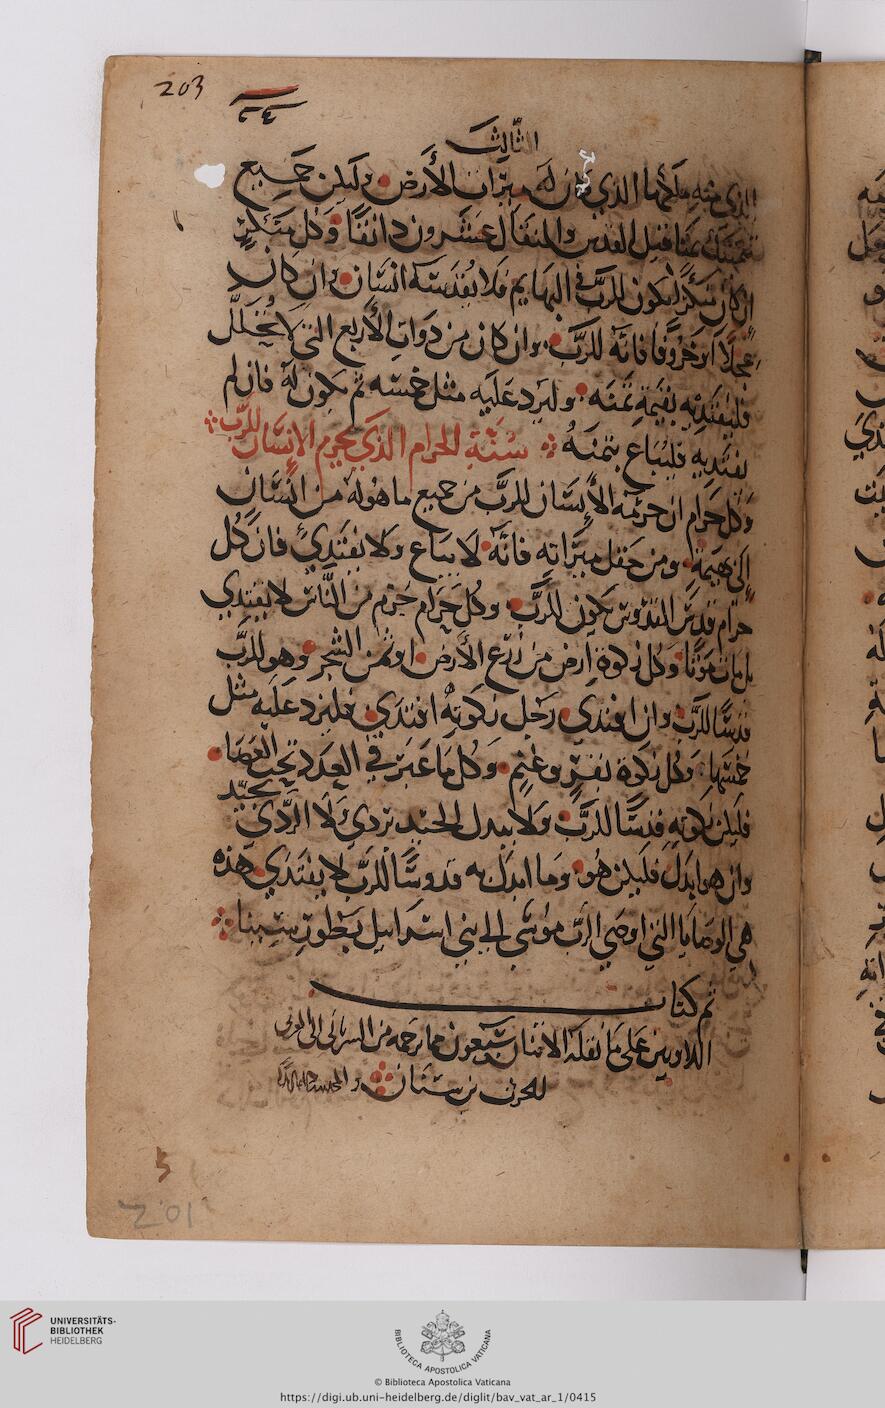 203
الثالث
الذي منه ملكها الذي كان له ميراث الأرض وليكن جميع
بمثقال القدس والمثقال عشرون دانقا وكل متبكر
ان كان تبكرا يكون للرب في البهايم فلا يقدسه انسان وان كان
عجلا او خروفا فانه للرب وان كان من دوات الأربع التي لا تحلل
فليفتديه بقيمة ثمنه وليزد عليه مثل خمسه ثم يكون له فان لم
يفتديه فليباع بثمنه سنة الحرام الذي يحرم الإنسان للرب
وكل حرام ان حرمه الأنسان للرب من جميع ما هو له من انسان
إلى بهيمة ومن حقل ميراثه فانه لا يباع ولا يفتدي فان كل
حرام قدس القدوس يكون للرب وكل حرام حرم من الناس لا يفتدي
بل مات موتا وكل زكوة ارض من زرع الأرض او ثمن الشجر وهو للرب
قدسا للرب وان افتدي رجل زكوته افتدي فليزد عليه مثل
خمسها وكل زكوة بقر وغنم وكل ما عبر في العدد تحت العصا
فليكن زكوته قدسا للرب ولا يبدل الجيد بردي ولا الردي بجيد
وان هو ابدل فليكن هو وما ابدل به قدوسا للرب لا يفتدي هذه
هي الوصايا التي اوصي الرب موسى الي بني اسرايل بطور سينا
تم كتاب
اللاويين على ما نقله الاثنان وسبعون مما ترجمه من السرياني الى العربي
للحرث بن سنان
5
201
UNIVERSITÄTS-
BIBLIOTHEK
HEIDELBERG
BIBLIOTECA APOSTOLICA VATICANA
© Biblioteca Apostolica Vaticana
https://digi.ub.uni-heidelberg.de/diglit/bav_vat_ar_1/0415